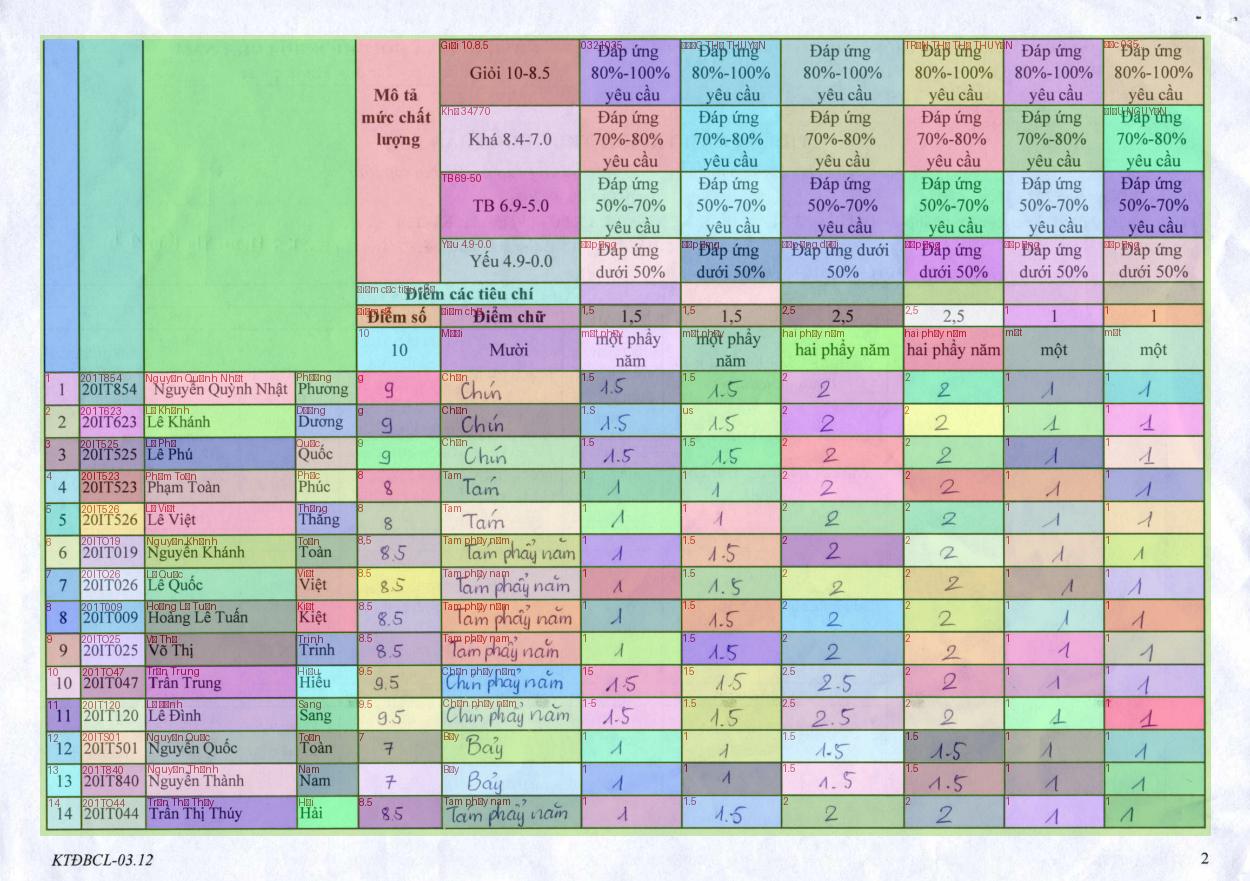 Mô tả mức chất lượng
Giỏi 10-8.5 Đáp ứng 80%-100% yêu cầu Đáp ứng 80%-100% yêu cầu Đáp ứng 80%-100% yêu cầu Đáp ứng 80%-100% yêu cầu Đáp ứng 80%-100% yêu cầu Đáp ứng 80%-100% yêu cầu
Khá 8.4-7.0 Đáp ứng 70%-80% yêu cầu Đáp ứng 70%-80% yêu cầu Đáp ứng 70%-80% yêu cầu Đáp ứng 70%-80% yêu cầu Đáp ứng 70%-80% yêu cầu Đáp ứng 70%-80% yêu cầu
TB 6.9-5.0 Đáp ứng 50%-70% yêu cầu Đáp ứng 50%-70% yêu cầu Đáp ứng 50%-70% yêu cầu Đáp ứng 50%-70% yêu cầu Đáp ứng 50%-70% yêu cầu Đáp ứng 50%-70% yêu cầu
Yếu 4.9-0.0 Đáp ứng dưới 50% Đáp ứng dưới 50% Đáp ứng dưới 50% Đáp ứng dưới 50% Đáp ứng dưới 50% Đáp ứng dưới 50%
Điểm các tiêu chí
Điểm số Điểm chữ 1,5 1,5 2,5 2,5 1 1
10 Mười một phẩy năm một phẩy năm hai phẩy năm hai phẩy năm một một
1 20IT854 Nguyễn Quỳnh Nhật Phương 9 Chín 1.5 1.5 2 2 1 1
2 20IT623 Lê Khánh Dương 9 Chín 1.5 1.5 2 2 1 1
3 20IT525 Lê Phú Quốc 9 Chín 1.5 1.5 2 2 1 1
4 20IT523 Phạm Toàn Phúc 8 Tám 1 1 2 2 1 1
5 20IT526 Lê Việt Thắng 8 Tám 1 1 2 2 1 1
6 20IT019 Nguyễn Khánh Toàn 8.5 Tám phẩy năm 1 1.5 2 2 1 1
7 20IT026 Lê Quốc Việt 8.5 Tám phẩy năm 1 1.5 2 2 1 1
8 20IT009 Hoàng Lê Tuấn Kiệt 8.5 Tám phẩy năm 1 1.5 2 2 1 1
9 20IT025 Võ Thị Trinh 8.5 Tám phẩy năm 1 1.5 2 2 1 1
10 20IT047 Trần Trung Hiếu 9.5 Chín phẩy năm 1.5 1.5 2.5 2 1 1
11 20IT120 Lê Đình Sang 9.5 Chín phẩy năm 1.5 1.5 2.5 2 1 1
12 20IT501 Nguyễn Quốc Toàn 7 Bảy 1 1 1.5 1.5 1 1
13 20IT840 Nguyễn Thành Nam 7 Bảy 1 1 1.5 1.5 1 1
14 20IT044 Trần Thị Thúy Hải 8.5 Tám phẩy năm 1 1.5 2 2 1 1
KTĐBCL-03.12 2